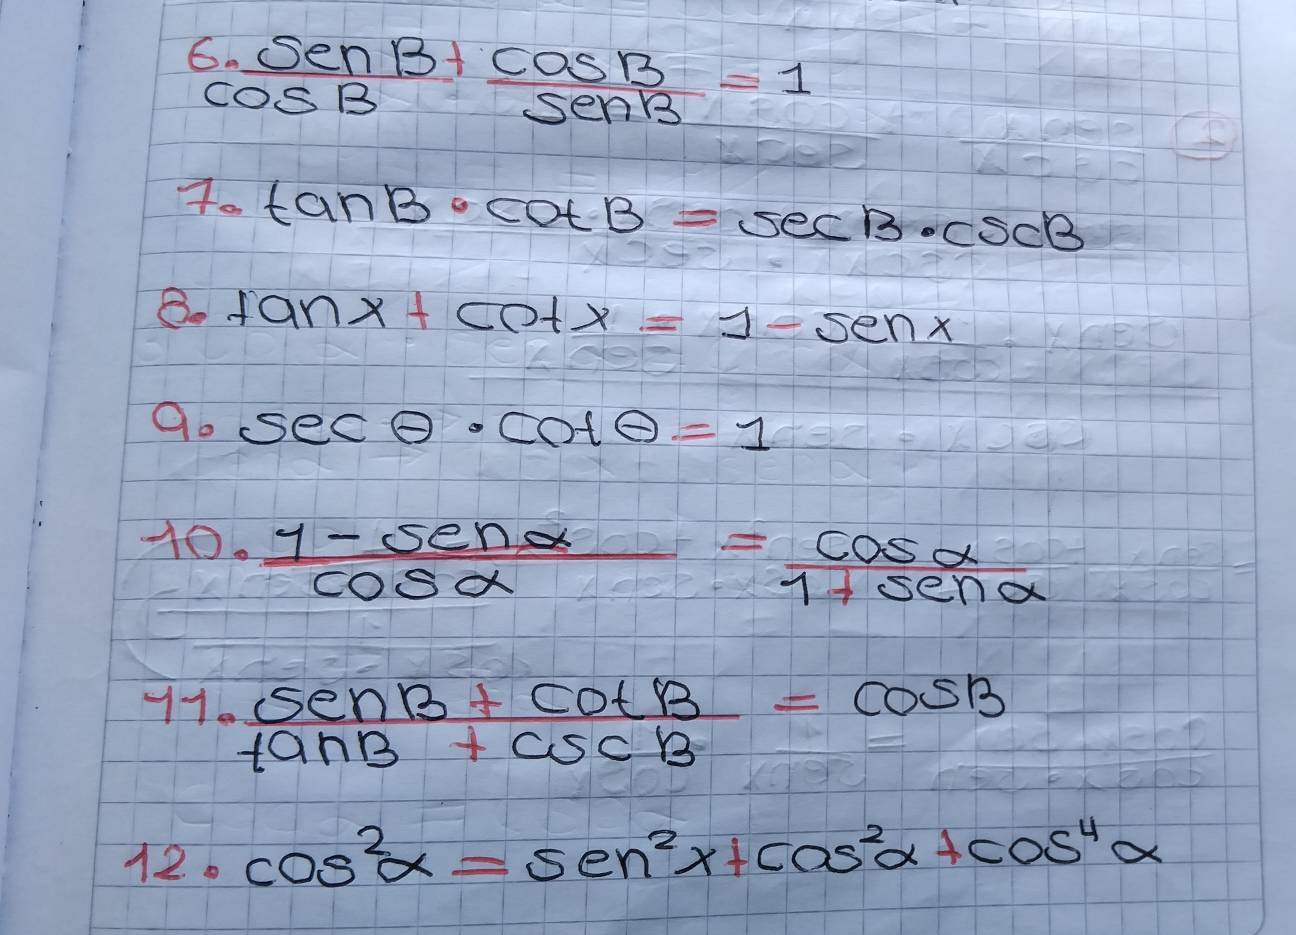 6. senB/cosB + cosB/senB = 1
7. tanB • cotB = secB • cscB
8. tanx + cotx = 1 - senx
9. secθ • cotθ = 1
10. 1 - senα/cosα = cosα/1 + senα
11. senB + cotB/tanB + cscB = cosB
12. cos²α = sen²x + cos²α + cos⁴α